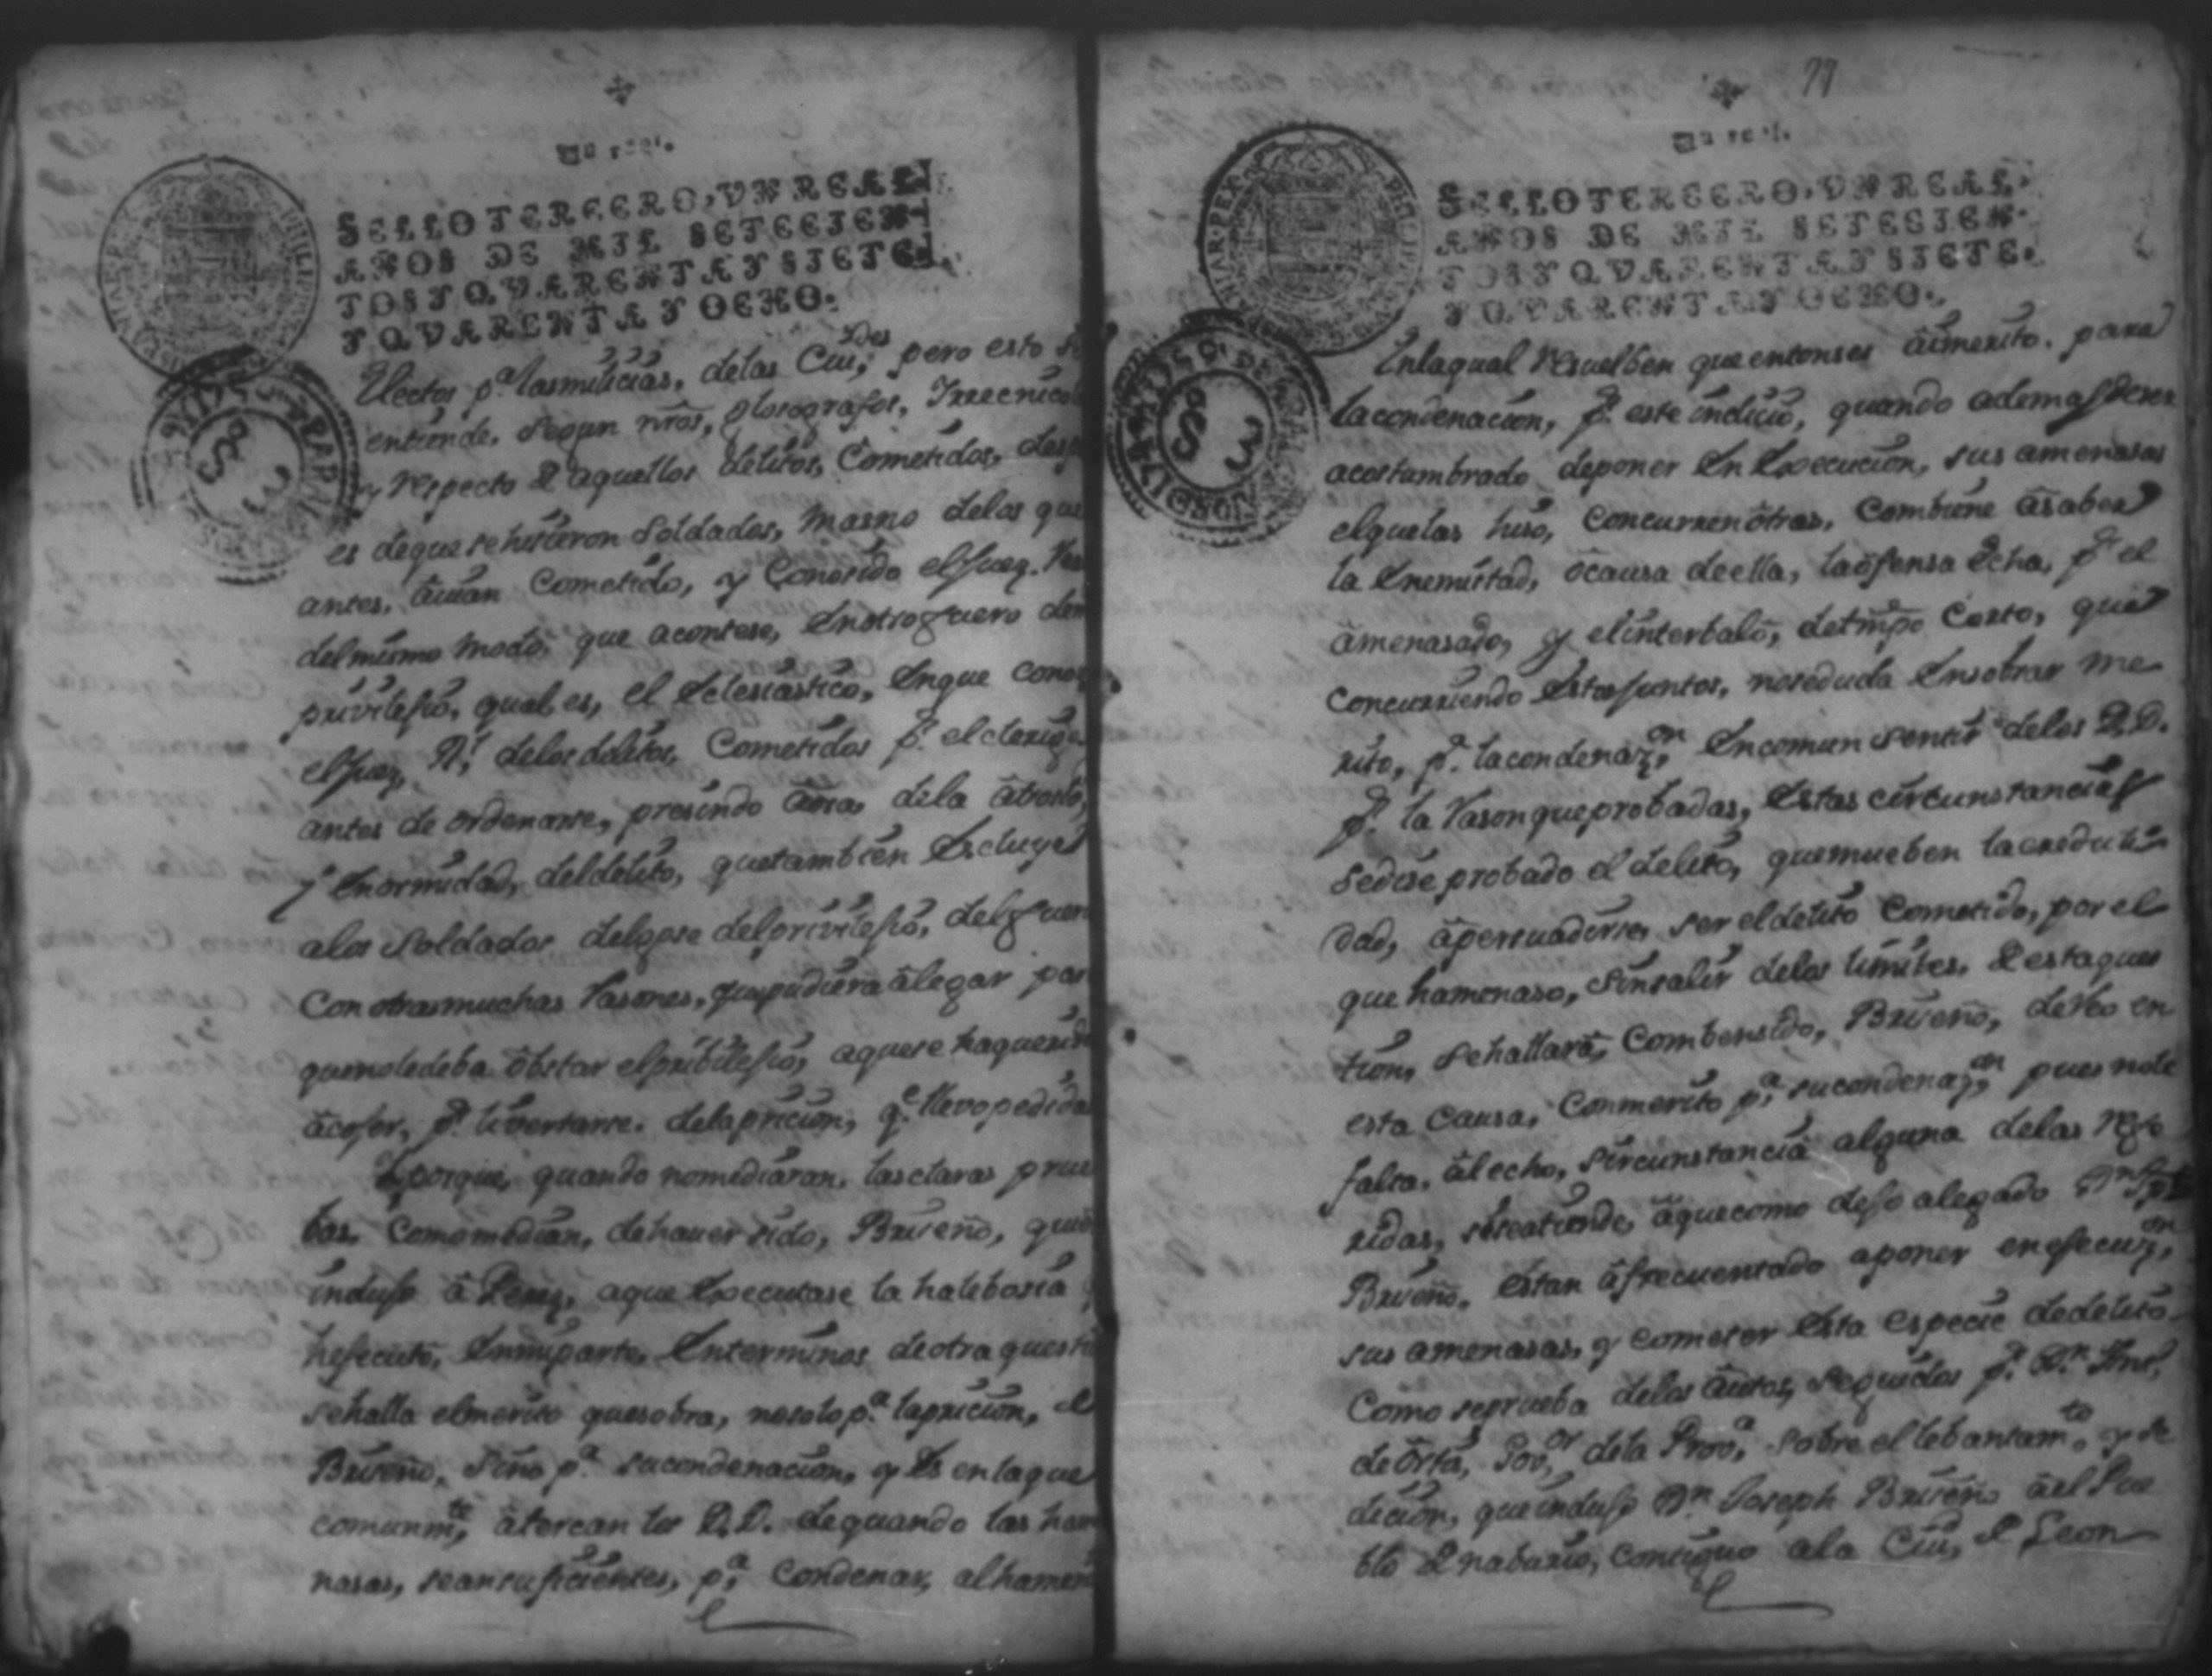 Un real.
SELLO TERCERO, VN REAL
AÑOS DE MIL SETECIEN-
TOS Y QVARENTA Y SIETE
Y QVARENTA Y OCHO.
Electos p.ª las milicias, de las Ciu,des pero esto se
entiende, segun nrõs, Irrecnicol
y respecto de aquellos delitos, Cometidos, desp
es de que se hisieron Soldados, mas no de los que
antes, auian Cometido, y Conosido el Juez. Rea
del mismo modo que acontese, En otro fuero de
privilesio, qual es, el Eclesiastico, En que conos
el Juez, Rl, de los delitos, Cometidos pr. el clerigo
antes de ordenarse, presindo aora, de la atrosid,
y Enormidad, del delito, que tambien Excluye
a los Soldados del gose del privilesio, del fuero
Con otras muchas Rasones, que pudiera alegar par
que no le deba obstar el pribilesio, a que se ha querido
acoser, pa. livertarse. de la pricion, q.e llevo pedida
Y porque, quando no mediaran, las claras prue
bas, Como median, de haver sido, Briseño, quien
induso â Perez, a que Executase la halebosia
hesecuto, En mi parte, En terminos de otra questi
se halla el merito que sobra, no solo p.ª la pricion, de
Briseño, Sino p.ª su condenacion, y Es en la que
comunmte, atercan los D.D. de quando las hame
nasas, sean suficientes, p.ª Condenar, al hamen
77
Un real.
SELLO TERCERO, VN REAL
AÑOS DE MIL SETECIEN-
TOS Y QVARENTA Y SIETE
Y QVARENTA Y OCHO.
En la qual resuelben que entonses ai merito. para
la condenacion, pr. este indicio, quando ademas de ser
acostumbrado de poner En Execucion, sus amenasas
el que las hiso, Concurren otras, Combiene â saber
la Enemistad, o causa de ella, la ofensa Echa, pr el
amenasado, y el interbalo, de tmpo Corto, que
Concurriendo Estas Juntas, no se duda En sobrar me
rito, p.ª la condenazon, En comun sentir de los D.D.
pr. la Rason que probadas, Estas circunstancias
se dise probado el delito, que mueben la credulis
dad, â persuadirse, ser el delito Cometido, por el
que hamenaso, Sin salir de los limites, de esta ques
tion, se hallara, Combensido, Briseño, de Reo en
esta Causa, Con merito p.ª su condenazon, pues no le
falta, al echo, Sircunstancia alguna de las refe
ridas, si se atiende, a que como deso alegado Dn Jph
Briseño, Estan afrecuentado a poner en esecuzon,
sus amenasas, y cometer Esta Especie de delito
Como se prueba de los autos, seguidos pr. Dn. Antº
de Ortis, Govor, de la Prova, Sobre el lebantamto y se
dicion, que induso Dn Joseph Briseño â el Pue
blo de nabario, contiguo a la Ciu, de Leon